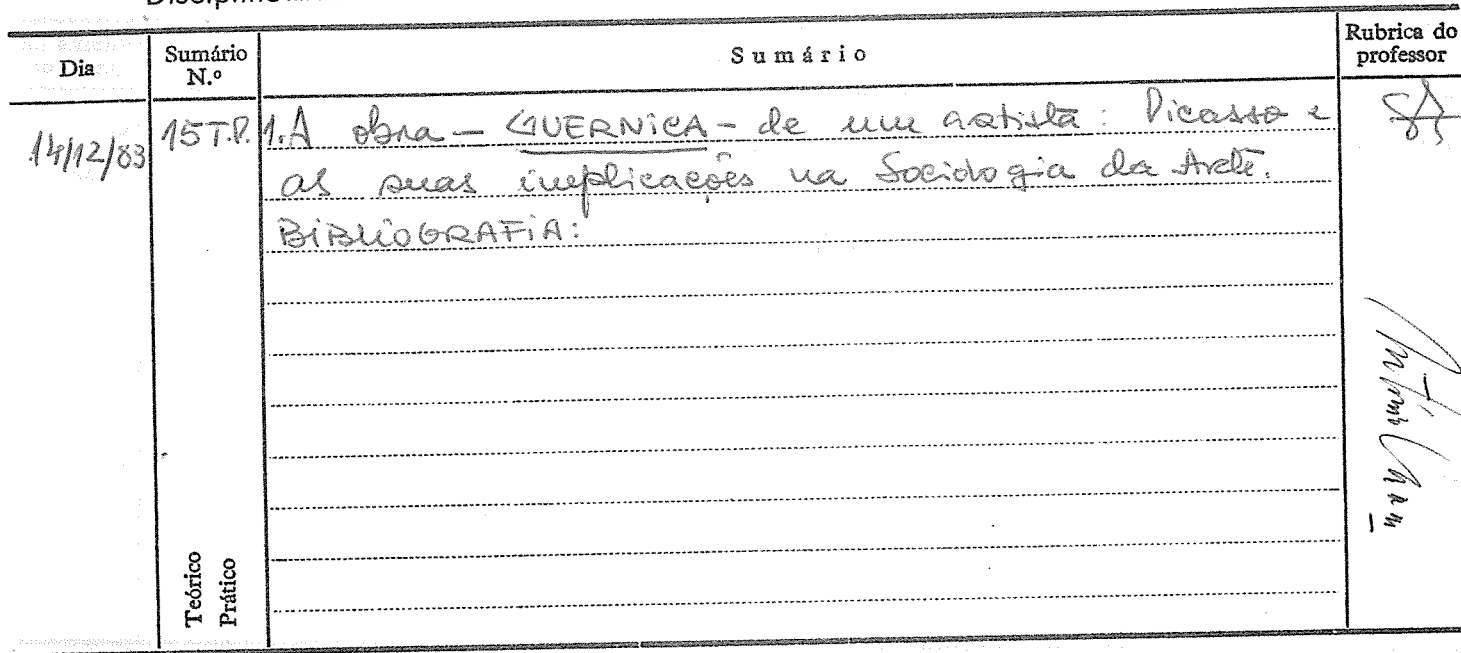 Dia
Sumário N.º
Sumário
Rubrica do professor
14/12/83 15 T.P. 1. A obra — GUERNICA - de um artista: Picasso e
as suas implicações na Sociologia da Arte.
BIBLIOGRAFIA:
Teórico
Prático